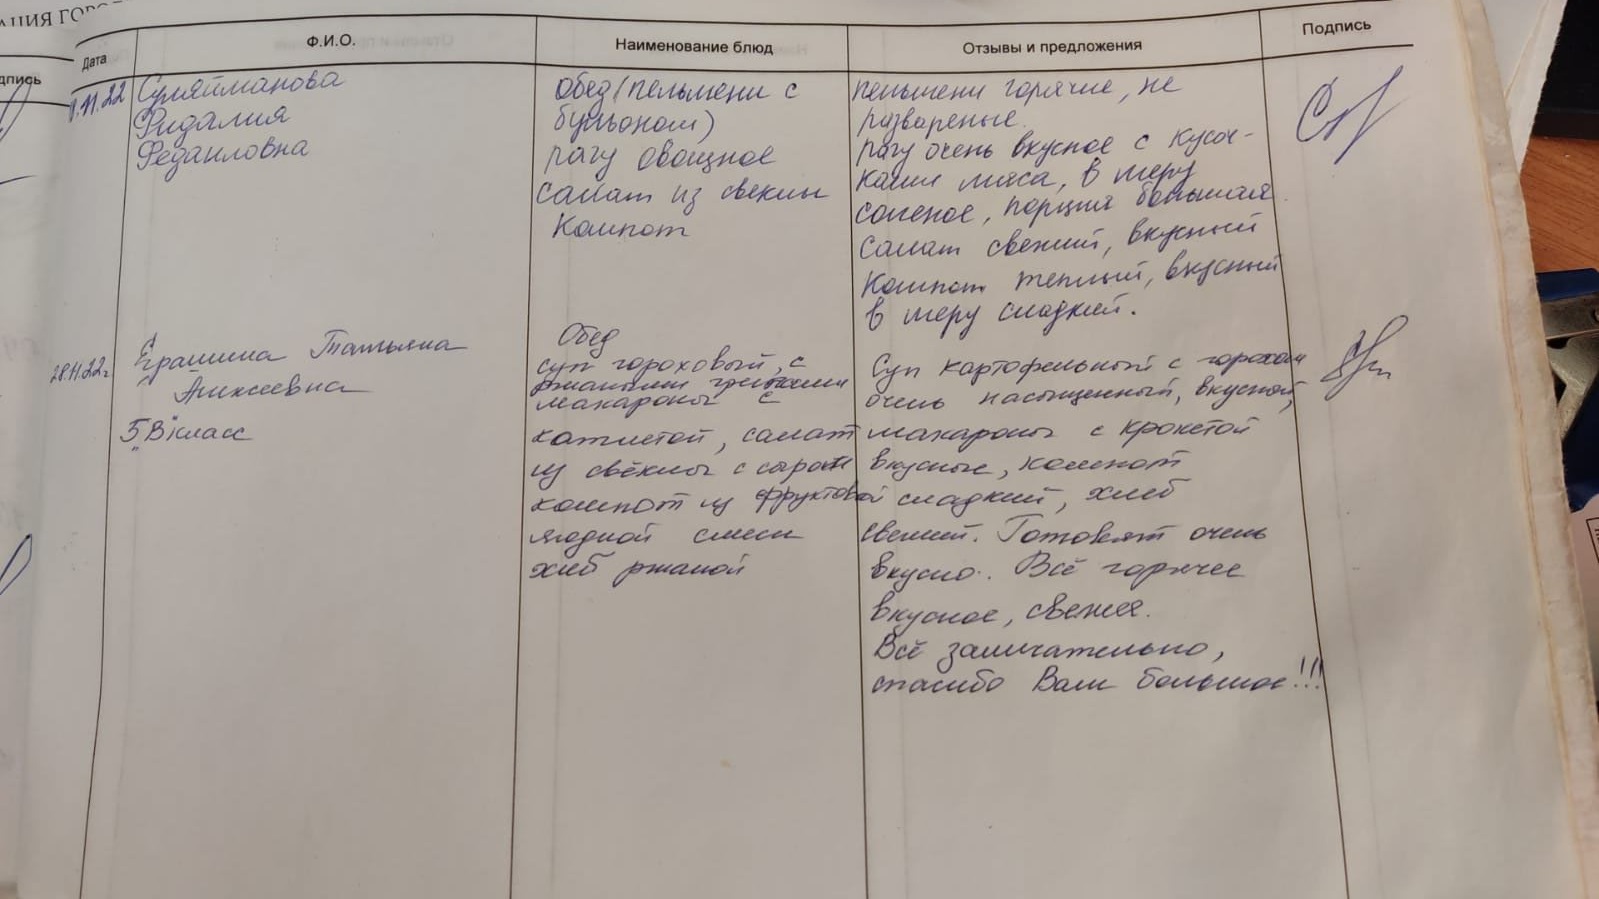 АЦИЯ ГОРО
дпись
Дата
Ф.И.О.
Наименование блюд
Отзывы и предложения
Подпись
.11.22
Сулейманова
Ридалия
Федаиловна
обед (пельмени с
бульоном)
рагу овощное
салат из свеклы
Компот
пельмени горячие, не
развареные.
рагу очень вкусное с кусоч-
ками мяса, в меру
соленое, порция большая.
салат свежий, вкусный
Компот теплый, вкусный
в меру сладкий.
28.11.22г.
Татьяна
Алексеевна
5 "В" класс
Обед
суп гороховый, с
ржаными гренками
макароны с
котлетой, салат
из свёклы с сыром
компот из фруктовой
ягодной смеси
хлеб ржаной
Суп картофельный с горохом
очень насыщенный, вкусной,
макароны с крокетой
вкусные, компот
сладкий, хлеб
свежий. Готовят очень
вкусно. Всё горячее
вкусное, свежее.
Всё замечательно,
спасибо Вам большое!!!